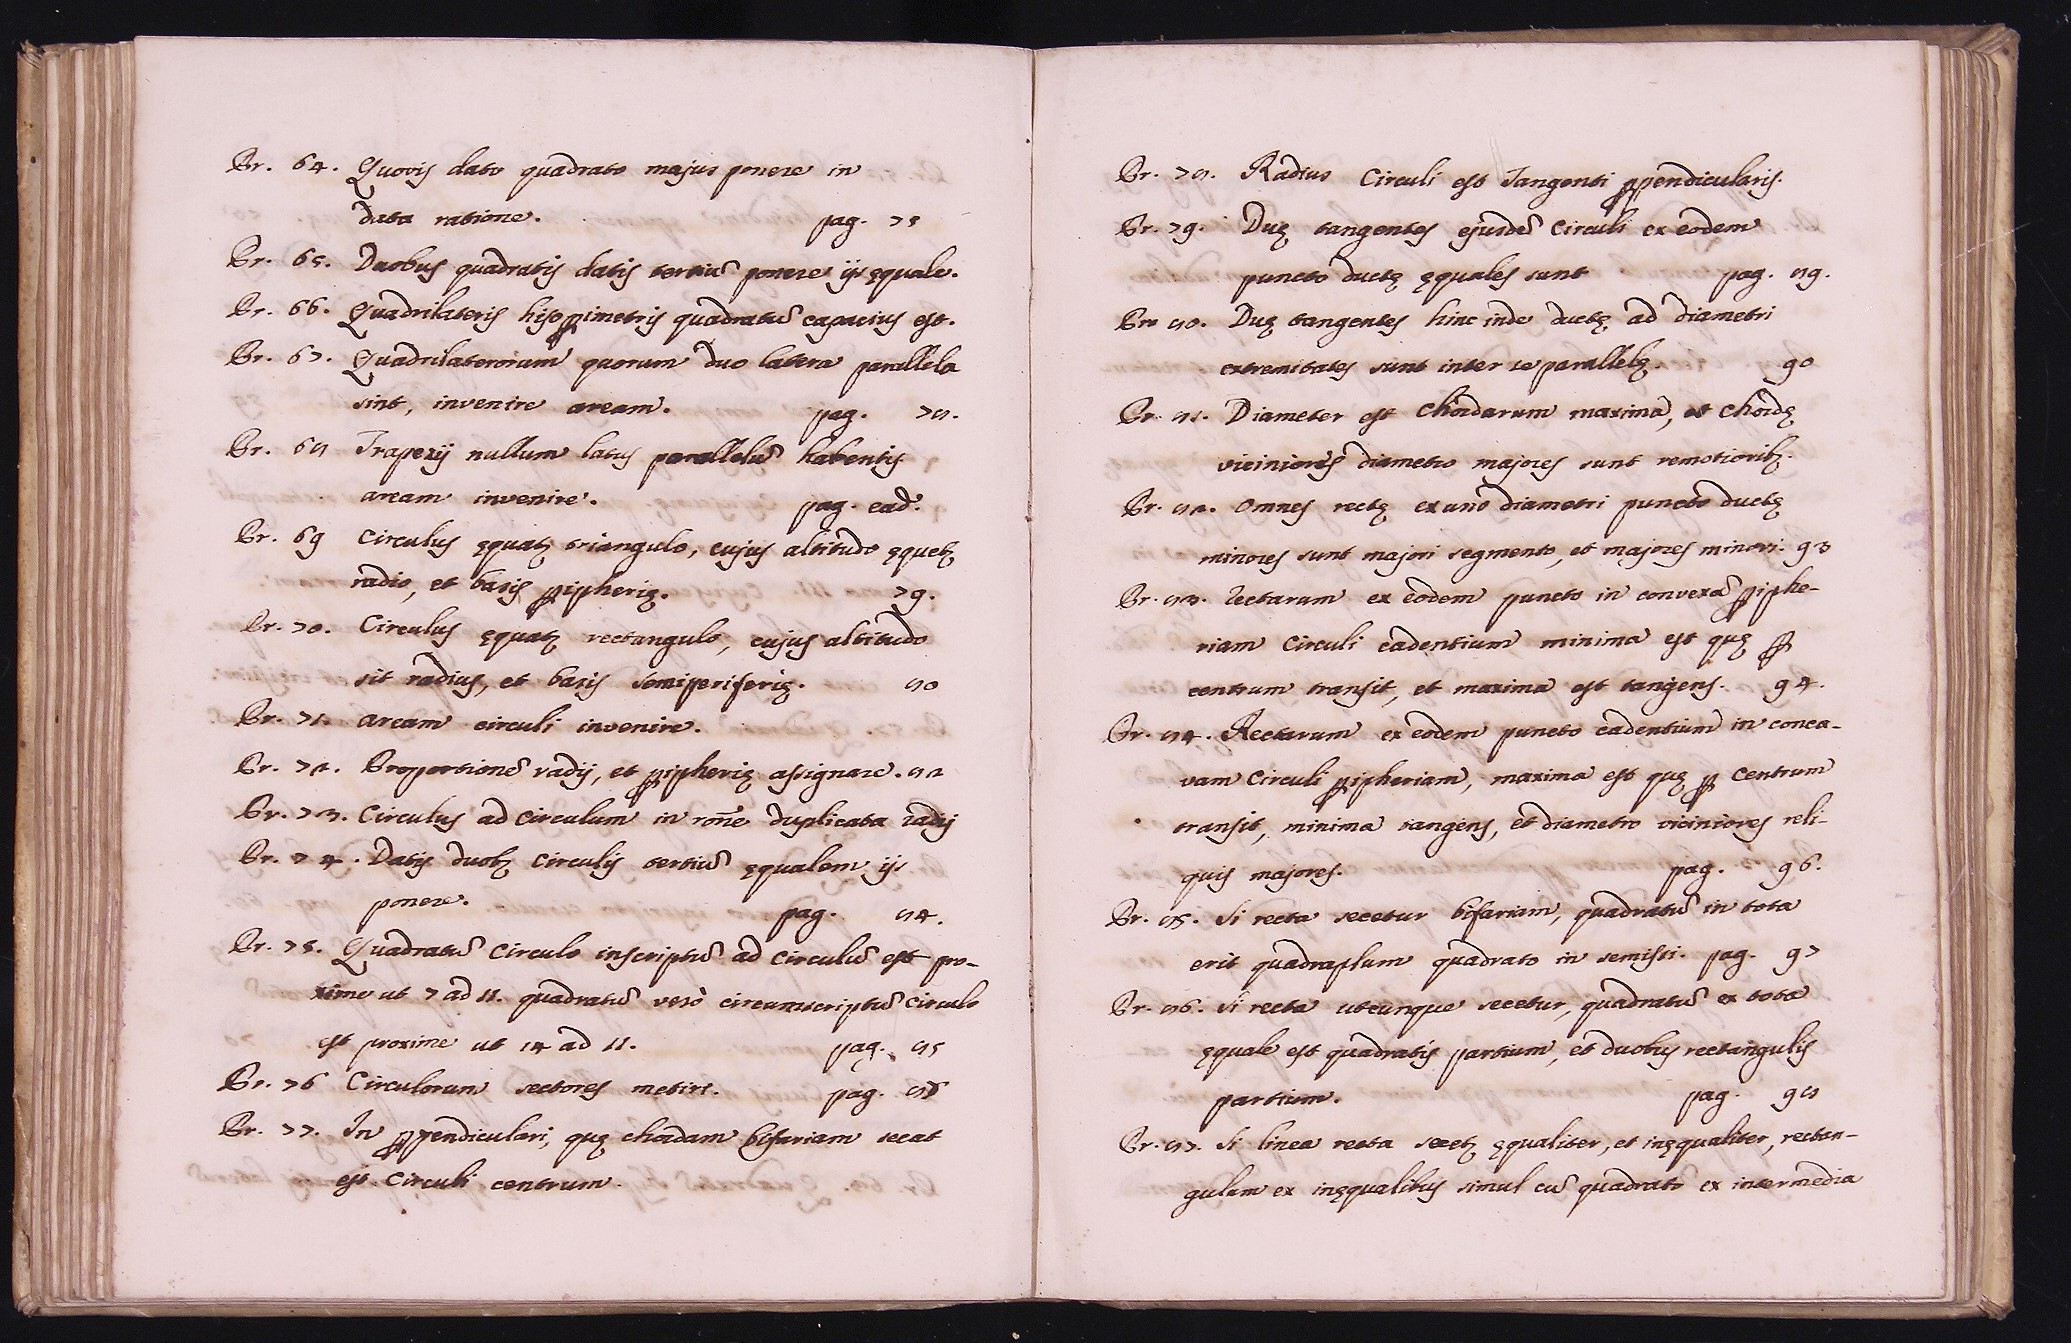 Pr. 64. Quovis dato quadrato majus ponere in
data ratione. pag. 75
Pr. 65. Duobus quadratis datis tertiũ ponere ijs ęquale.
Pr. 66. Quadrilateris hisoꝑimetris quadratũ capacius est.
Pr. 67. Quadrilaterorum quorum duo latera parallela
sint, invenire aream. pag. 78.
Pr. 68 Trapezij nullum latus parallelũ habentis
aream invenire. pag. ead.
Pr. 69 Circulus ęquatꝫ triangulo, cujus altitudo ęquetꝫ
radio, et basis ꝑipherię. 79.
Pr. 70. Circulus ęquatꝫ rectangulo, cujus altitudo
sit radius, et basis semiperiferię. 80
Pr. 71. aream circuli invenire.
Pr. 72. Proportionẽ radij, et ꝑipherię assignare. 82
Pr. 73. Circulus ad circulum in rõne duplicata radij
Pr. 74. Datis duobꝫ circulis tertiũ ęqualem ijs
ponere. pag. 84.
Pr. 75. Quadratũ circulo inscriptũ ad circulũ est pro-
xime ut 7 ad 11. quadratũ verò circumscriptũ circulo
est proxime ut 14 ad 11. pag. 85
Pr. 76 Circulorum sectores metiri. pag. 86
Pr. 77. In ꝑpendiculari, quę chordam bifariam secat
est circuli centrum.
Pr. 78. Radius Circuli est Tangenti ꝑpendicularis.
Pr. 79. Duę tangentes ejusdẽ circuli ex eodem
puncto ductę ęquales sunt pag. 89.
Pr. 80. Duę tangentes hinc inde ductę ad diametri
extremitates sunt inter se parallelę. 90
Pr. 81. Diameter est chordarum maxima, et chordę
viciniores diametro majores sunt remotioribꝫ.
Pr. 82. Omnes rectę ex uno diametri puncto ductę
minores sunt majori segmento, et majores minori. 93
Pr. 83. rectarum ex eodem puncto in convexã ꝑiphe-
riam Circuli cadentium minima est quę ꝑ
centrum transit, et maxima est tangens. 94.
Pr. 84. Rectarum ex eodem puncto cadentium in conca-
vam Circuli ꝑipheriam, maxima est quę ꝑ Centrum
transit, minima tangens, et diametro viciniores reli-
quis majores. pag. 96.
Pr. 85. Si recta secetur bifariam, quadratũ in tota
erit quadruplum quadrato in semissi. pag. 97
Pr. 86. Si recta utcunque secetur, quadratũ ex tota
ęquale est quadratis partium, et duobus rectangulis
partium. pag. 98
Pr. 87. Si linea recta secetꝫ ęqualiter, et inęqualiter, rectan-
gulum ex inęqualibus simul cũ quadrato ex intermedia